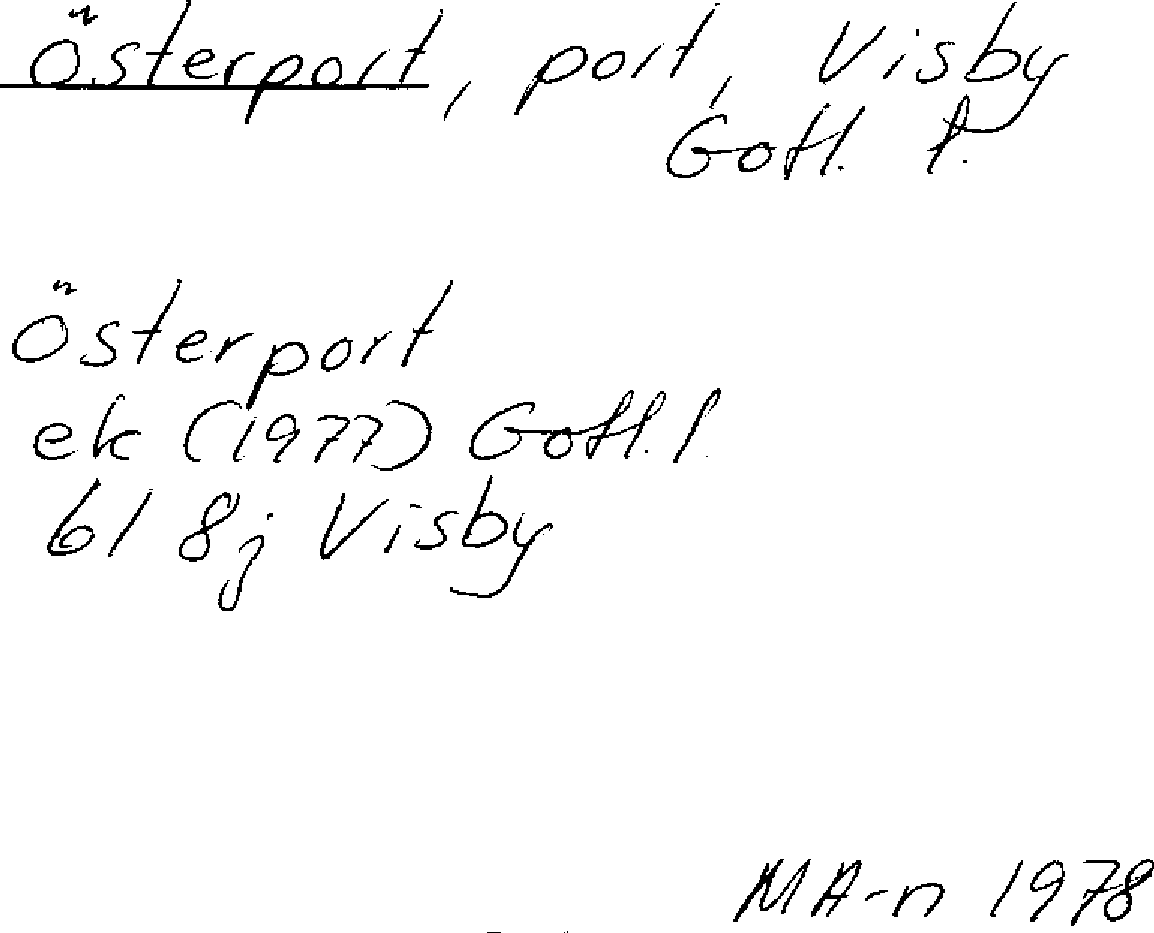 Österport, port, Visby
Gotl. l.
Österport
ek (1977) Gotl. l.
6I 8j Visby
MA-n 1978